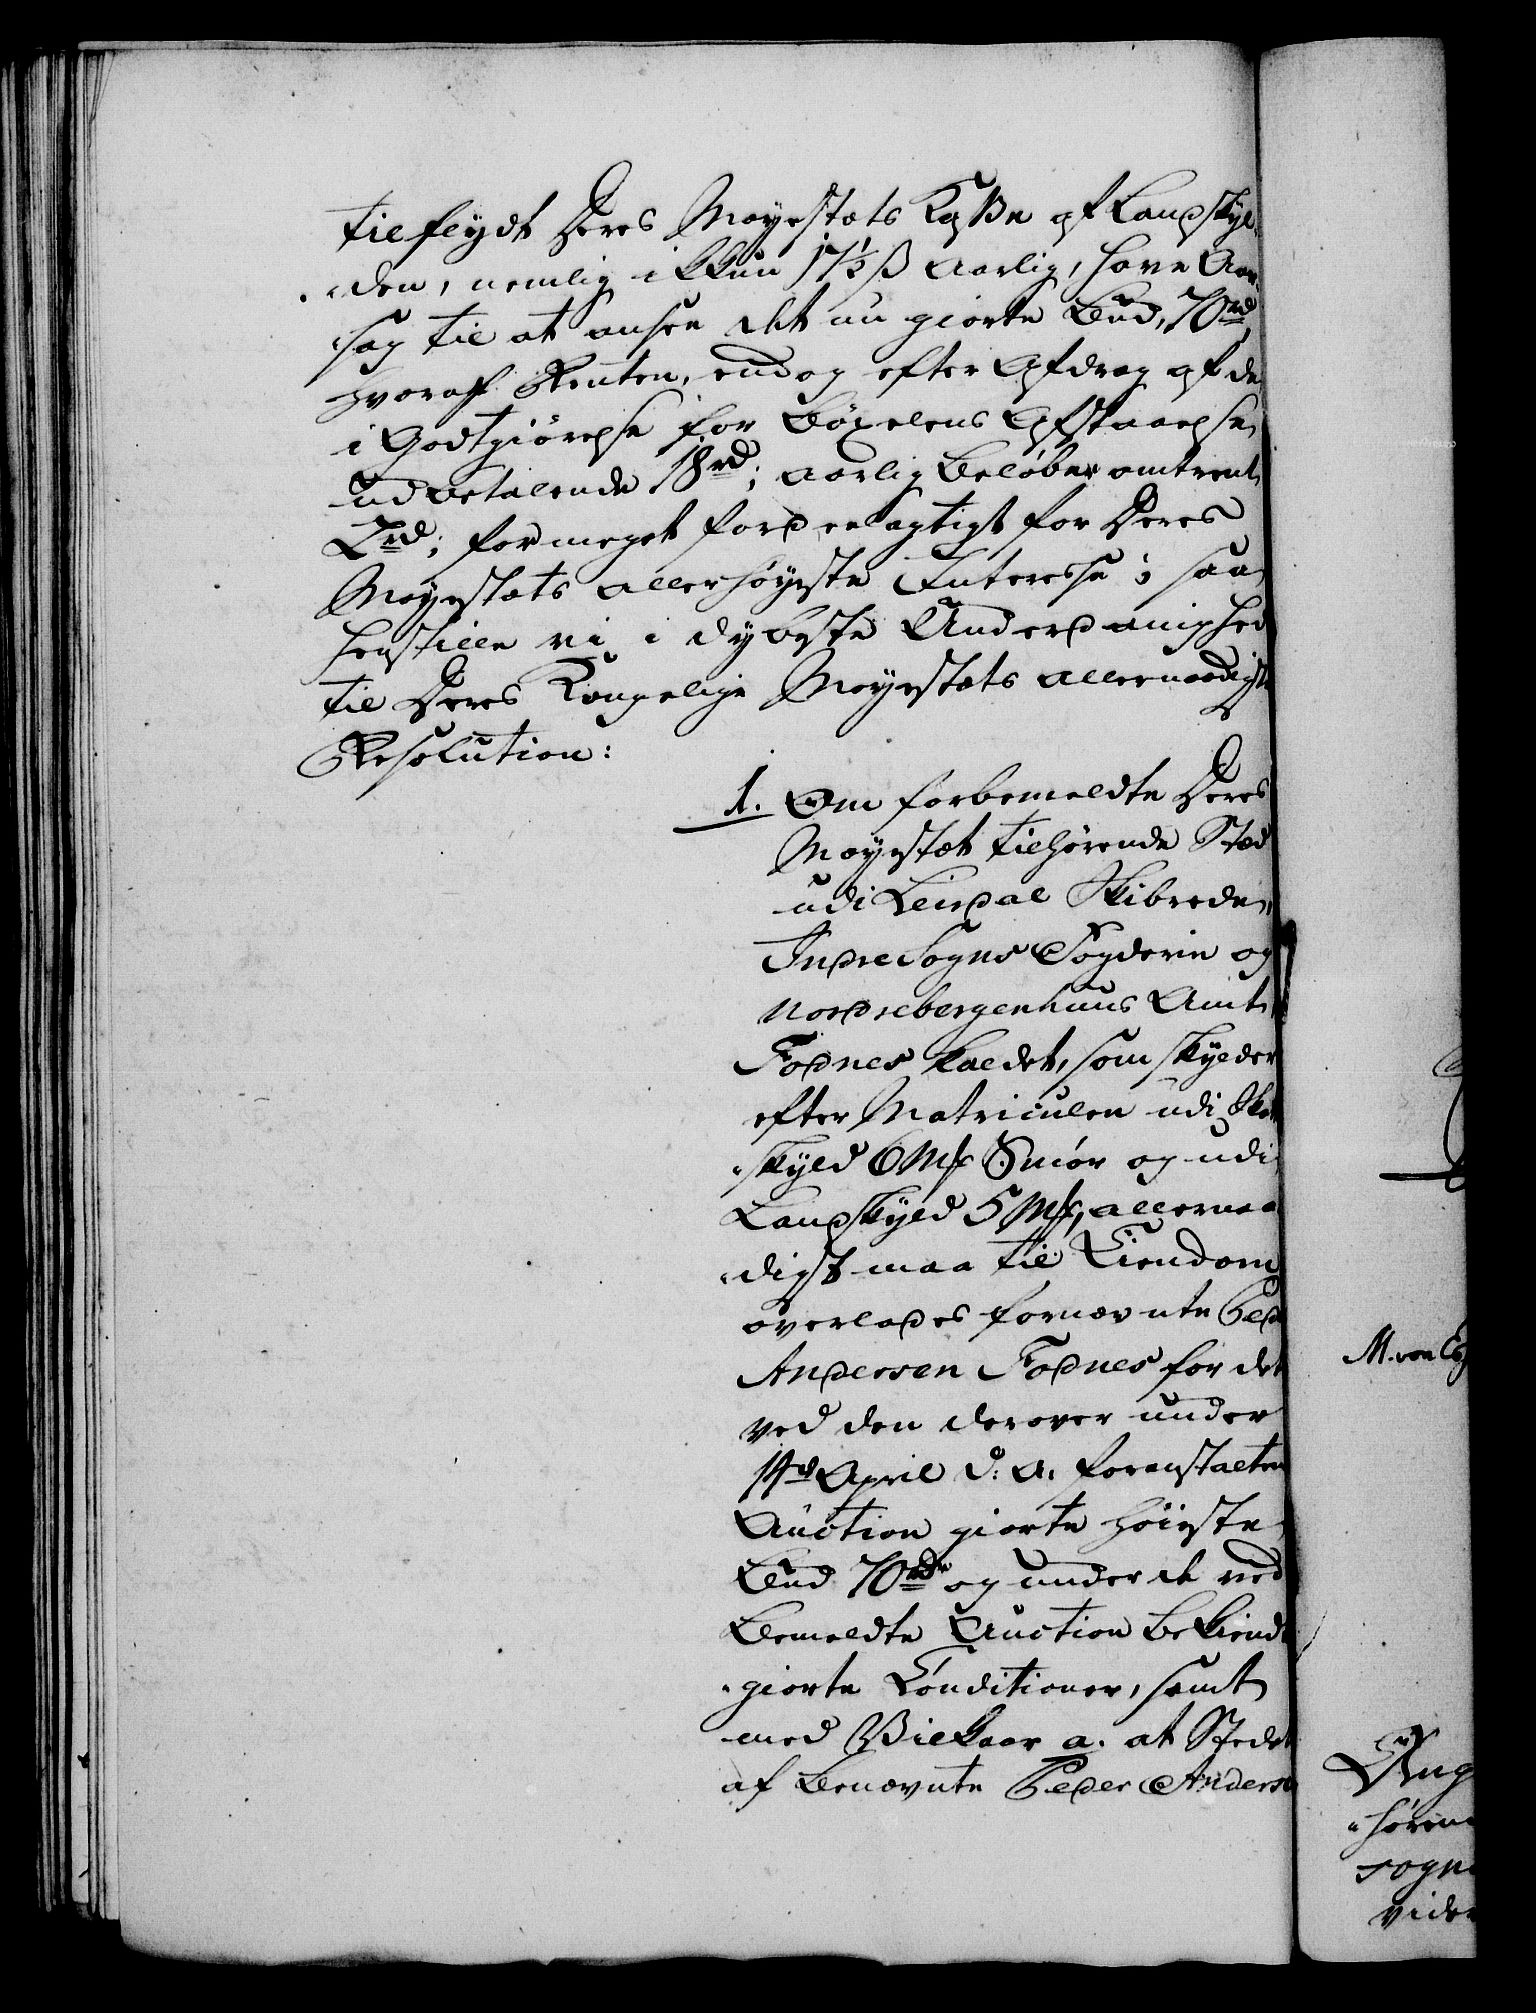 tilflydt Deres Mayestæts Kasse af Landskyl¬
„den, nemlig ikkun 17½ ß aarlig, have Aar¬
„sag til at ansee det nu giorte Bud, 70 rd
hvoraf Renten, endog efter Afdrag af de
i Godtgiørelse for Bøxelens Afstaaelse
udbetalende 18 rd; aarlig beløber omtrent
2 rd; for meget fordeelagtigt for Deres
Mayestæts allerhøyeste Interesse; saa
henstille vi i dybeste Underdanighed
til Deres Kongelige Mayestæts allernaadigste
Resolution:
1. Om forbemeldte Deres
Mayestæt tilhørende Sted
udi Leirdal Skibrede,
Indre Sogns Fogderie og
Nordrebergenhuus Amt
Fodnes kaldet, som skylder
efter Matriculen udi Skat¬
„skyld 6 Mk Smør og udi
Landskyld 5 Mk, allernaa
„digst maa til Eiendom
overlades fornævnte Peder
Andersen Fodnes for det
ved den derover under
14d April d: A: foranstaltede
Auction giorte høieste
Bud 70 rdr og under de ved
bemeldte Auction bekiendt
„giorte Conditioner, samt
med Vilkaar a. at Stedet
af benævnte Peder Anders
M. von Eg
Ang
„høren
sogn
vide